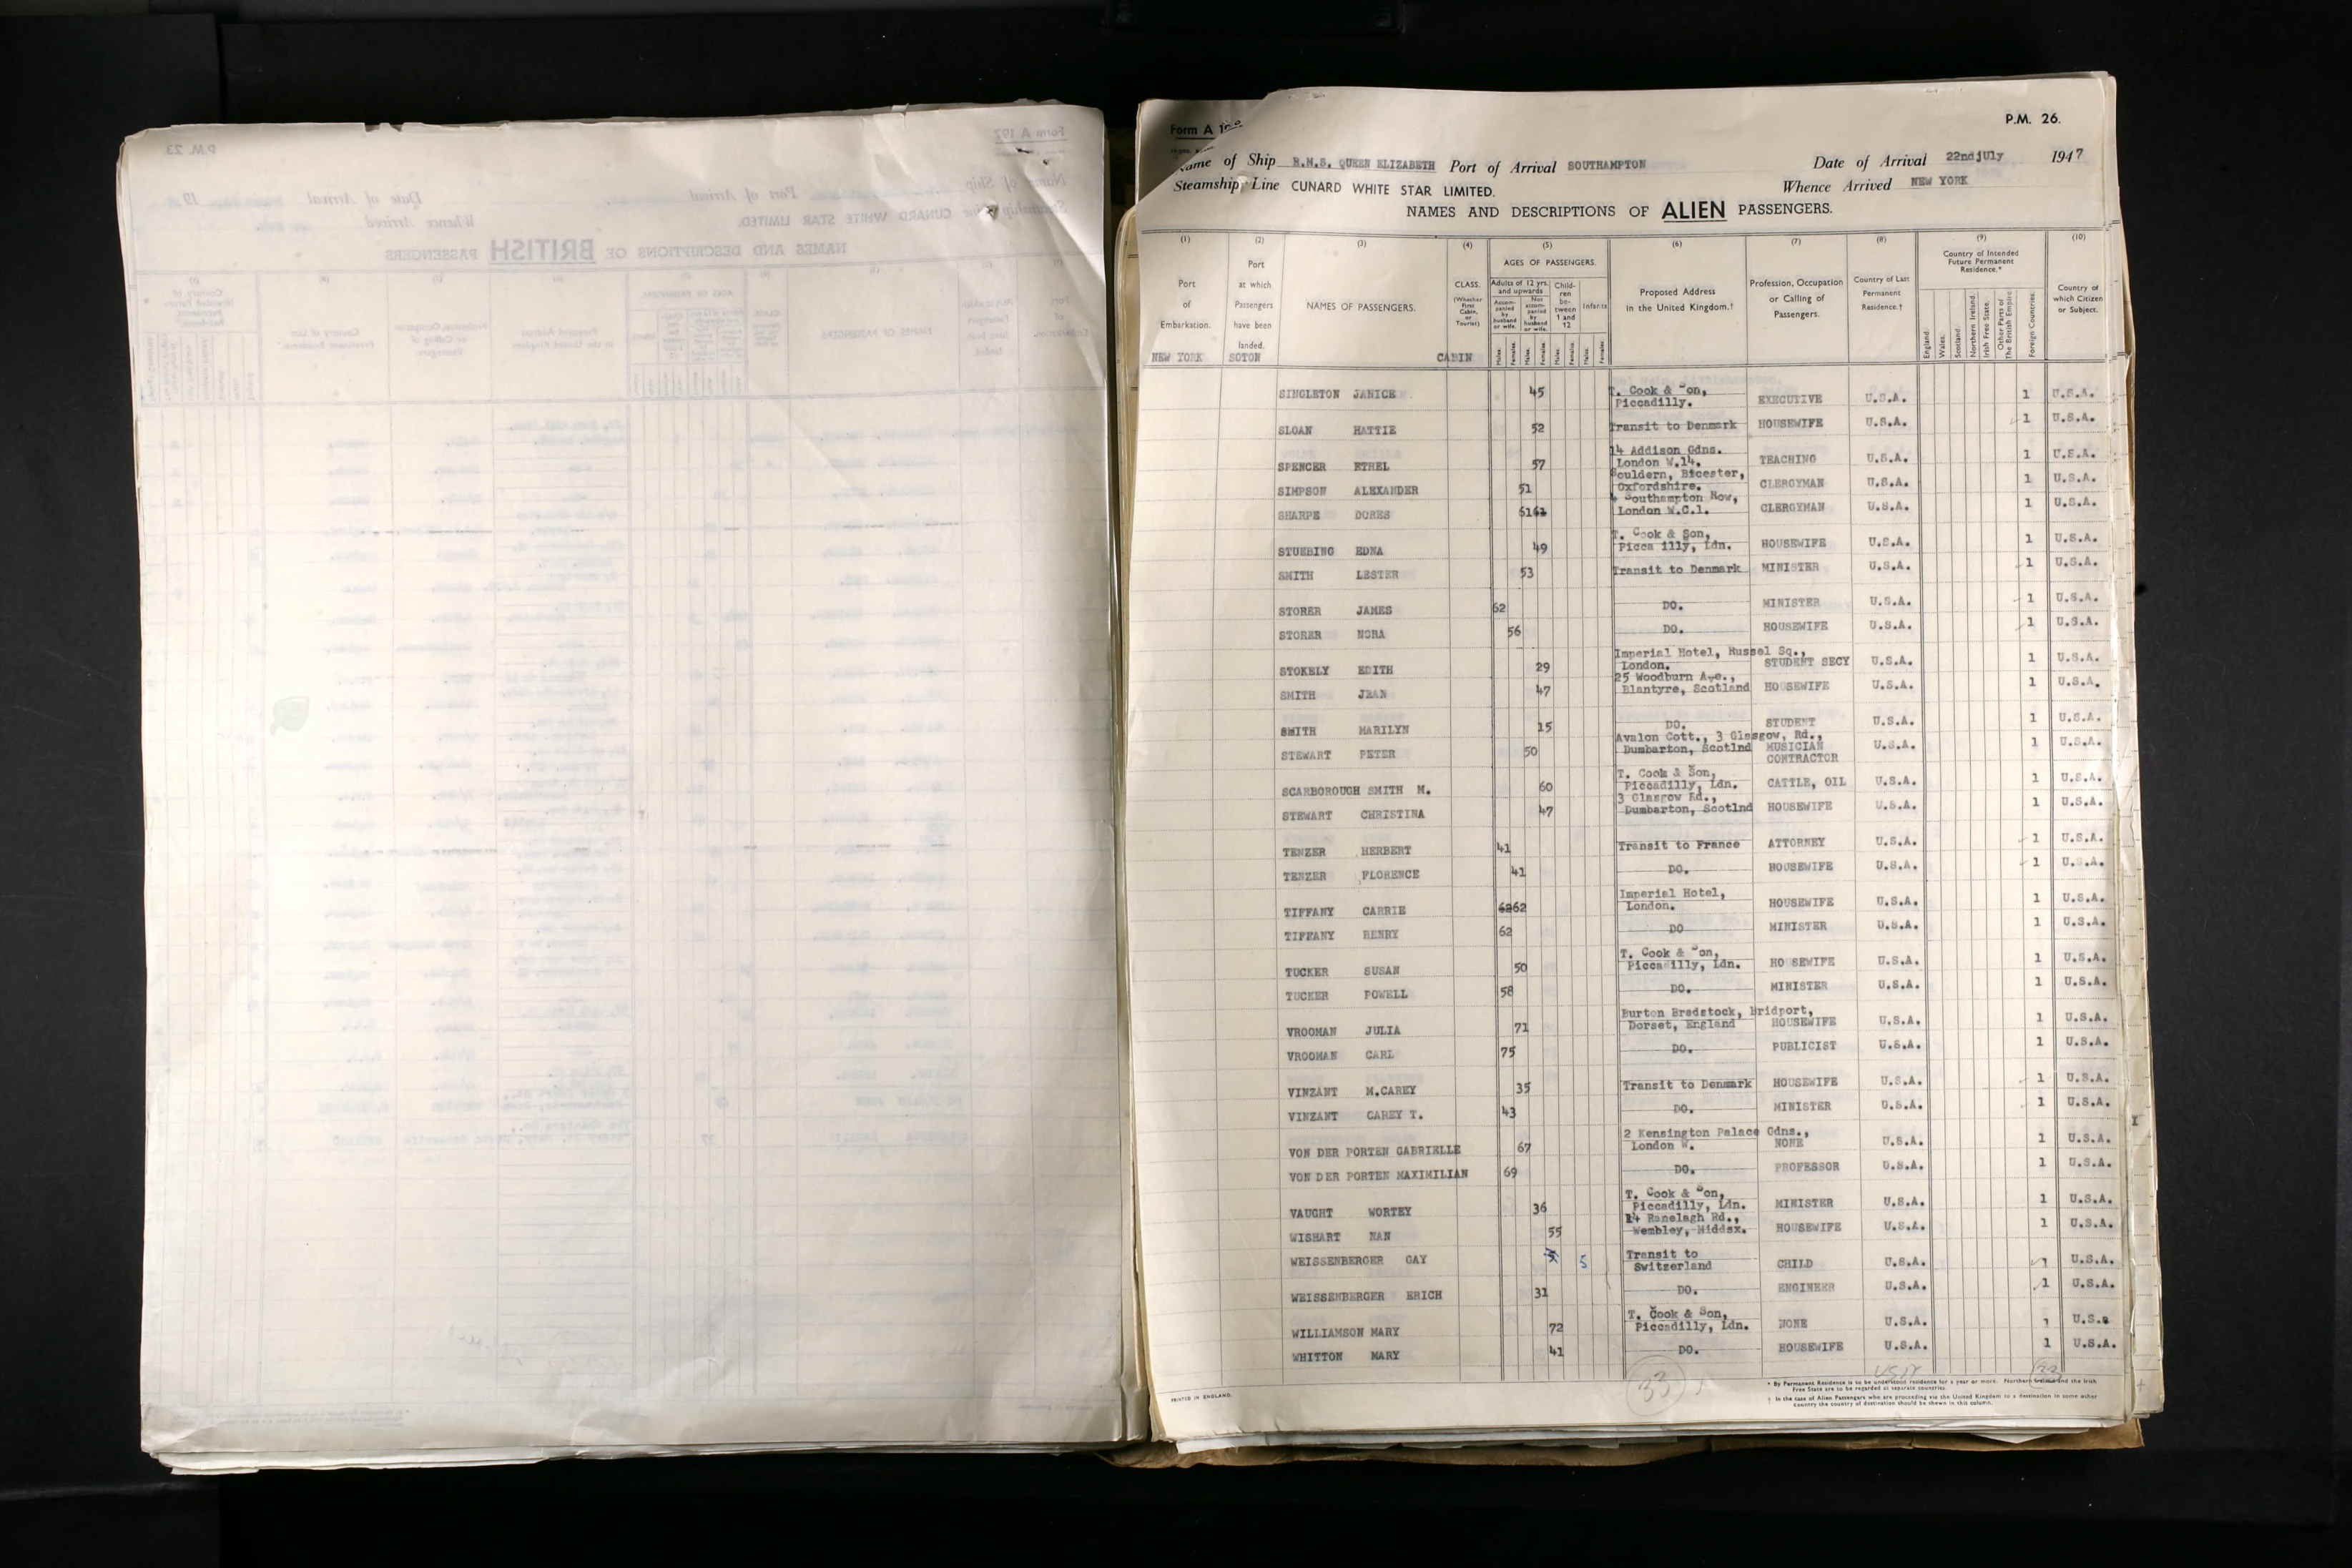 P.M. 26.
Form A
Name of Ship R.M.S. QUEEN ELIZABETH Port of Arrival SOUTHAMPTON Date of Arrival 22nd jUly 1947
Steamship Line CUNARD WHITE STAR LIMITED. Whence Arrived NEW YORK
NAMES AND DESCRIPTIONS OF ALIEN PASSENGERS.
(1) (2) (3) (4) (5) (6) (7) (8) (9) (10)
Port of Embarkation.
Port at which Passengers have been landed.
NAMES OF PASSENGERS.
CLASS. (Whether First Cabin, or Tourist)
AGES OF PASSENGERS.
Adults of 12 yrs. and upwards
Accompanied by husband or wife.
Not accompanied by husband or wife.
Children between 1 and 12
Infants
Males. Females. Males. Females. Males. Females. Males. Females.
Proposed Address in the United Kingdom.†
Profession, Occupation or Calling of Passengers.
Country of Last Permanent Residence.†
Country of Intended Future Permanent Residence.*
England. Wales. Scotland. Northern Ireland. Irish Free State. Other Parts of The British Empire Foreign Countries.
Country of which Citizen or Subject.
NEW YORK SOTON CABIN
SINGLETON JANICE 45 T. Cook & Son, Piccadilly. EXECUTIVE U.S.A. 1 U.S.A.
SLOAN HATTIE 52 Transit to Denmark HOUSEWIFE U.S.A. 1 U.S.A.
SPENCER ETHEL 57 14 Addison Gdns. London W.14. TEACHING U.S.A. 1 U.S.A.
SIMPSON ALEXANDER 51 Souldern, Bicester, Oxfordshire. CLERGYMAN U.S.A. 1 U.S.A.
SHARPE DORES 61 61 4 Southampton Row, London W.C.1. CLERGYMAN U.S.A. 1 U.S.A.
STUEBING EDNA 49 T. Cook & Son, Picca illy, Ldn. HOUSEWIFE U.S.A. 1 U.S.A.
SMITH LESTER 53 Transit to Denmark MINISTER U.S.A. 1 U.S.A.
STORER JAMES 62 DO. MINISTER U.S.A. 1 U.S.A.
STORER NORA 56 DO. HOUSEWIFE U.S.A. 1 U.S.A.
STOKELY EDITH 29 Imperial Hotel, Russel Sq., London. STUDENT SECY U.S.A. 1 U.S.A.
SMITH JEAN 47 25 Woodburn Ave., Blantyre, Scotland HOUSEWIFE U.S.A. 1 U.S.A.
SMITH MARILYN 15 DO. STUDENT U.S.A. 1 U.S.A.
STEWART PETER 50 Avalon Cott., 3 Glasgow, Rd., Dumbarton, Scotlnd MUSICIAN CONTRACTOR U.S.A. 1 U.S.A.
SCARBOROUGH SMITH M. 60 T. Cook & Son, Piccadilly, Ldn. CATTLE, OIL U.S.A. 1 U.S.A.
STEWART CHRISTINA 47 3 Glasgow Rd., Dumbarton, Scotlnd HOUSEWIFE U.S.A. 1 U.S.A.
TENZER HERBERT 41 Transit to France ATTORNEY U.S.A. 1 U.S.A.
TENZER FLORENCE 41 DO. HOUSEWIFE U.S.A. 1 U.S.A.
TIFFANY CARRIE 62 62 Imperial Hotel, London. HOUSEWIFE U.S.A. 1 U.S.A.
TIFFANY HENRY 62 DO MINISTER U.S.A. 1 U.S.A.
TUCKER SUSAN 50 T. Cook & Son, Picca illy, Ldn. HO SEWIFE U.S.A. 1 U.S.A.
TUCKER POWELL 58 DO. MINISTER U.S.A. 1 U.S.A.
VROOMAN JULIA 71 Burton Bradstock, Bridport, Dorset, England HOUSEWIFE U.S.A. 1 U.S.A.
VROOMAN CARL 75 DO. PUBLICIST U.S.A. 1 U.S.A.
VINZANT M.CAREY 35 Transit to Denmark HOUSEWIFE U.S.A. 1 U.S.A.
VINZANT CAREY T. 43 DO. MINISTER U.S.A. 1 U.S.A.
VON DER PORTEN GABRIELLE 67 2 Kensington Palace Gdns., London W. NONE U.S.A. 1 U.S.A.
VON DER PORTEN MAXIMILIAN 69 DO. PROFESSOR U.S.A. 1 U.S.A.
VAUGHT WORTEY 36 T. Cook & Son, Piccadilly, Ldn. MINISTER U.S.A. 1 U.S.A.
WISHART NAN 55 14 Ranelagh Rd., Wembley, Middsx. HOUSEWIFE U.S.A. 1 U.S.A.
WEISSENBERGER GAY 5 5 Transit to Switzerland CHILD U.S.A. 1 U.S.A.
WEISSENBERGER ERICH 31 DO. ENGINEER U.S.A. 1 U.S.A.
WILLIAMSON MARY 72 T. Cook & Son, Piccadilly, Ldn. NONE U.S.A. 1 U.S.
WHITTON MARY 41 DO. HOUSEWIFE U.S.A. 1 U.S.A.
33
PRINTED IN ENGLAND.
* By Permanent Residence is to be understood residence for a year or more. Northern Ireland and the Irish Free State are to be regarded as separate countries.
† In the case of Alien Passengers who are proceeding via the United Kingdom to a destination in some other Country the country of destination should be shewn in this column.